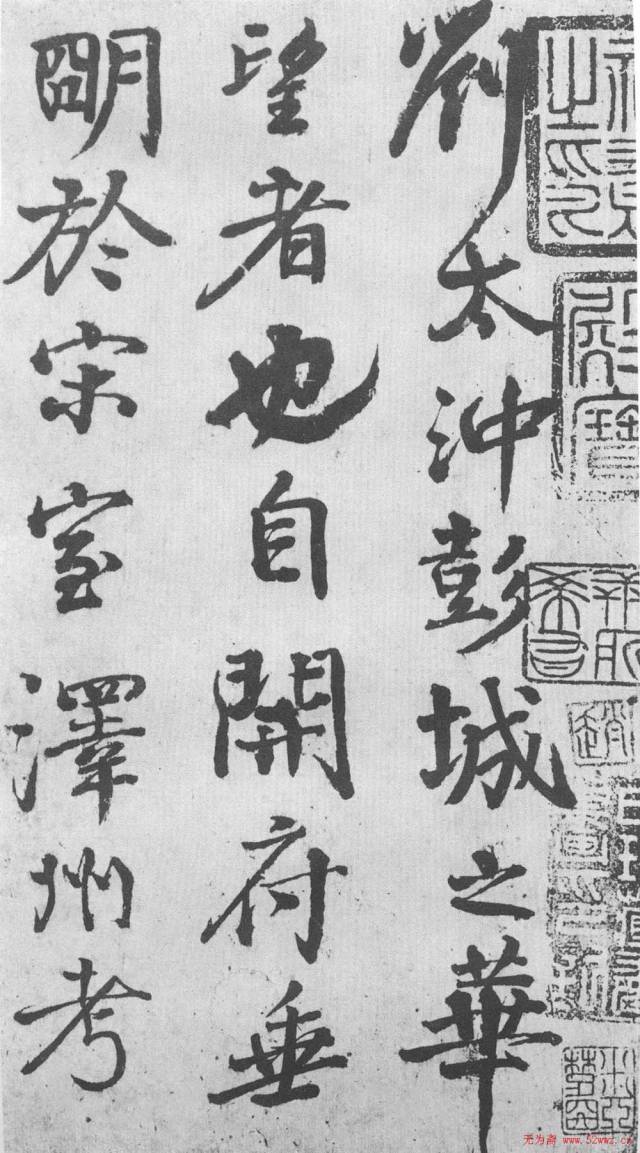 劉太沖彭城之華
望者也自開府垂
朙於宋室澤州考
无为斋 www.52wwz.cn